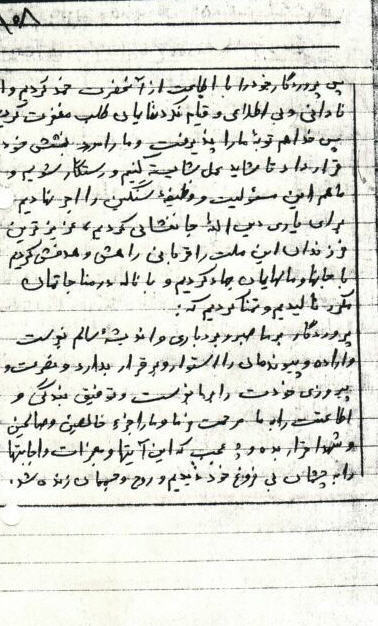 ۱۵۸
پس پروردگار خود را با اطاعت از آنحضرت حمد کردیم و از
نادانی و بی اطلاعی و قیام نکردنمان طلب مغفرت کردیم
پس خدا هم توبهٔ ما را پذیرفت و ما را مورد بخشش خود
قرار داد تا شاید عمل شایسته کنیم و رستگار شویم و
ما هم این مسئولیت و وظیفهٔ سنگین را اجر نهادیم
برای یاری دین الله جانفشانی کردیم، عزیزترین
فرزندان این ملت را قربانی راهش و هدفش کردیم
با جانها و مالهایمان جهاد کردیم و با ناله در مناجاتمان
مکرر نالیدیم و تمنا کردیم که:
پروردگار بر ما صبر و بردباری و اندیشهٔ سالم توست
و اراده و پیوندمان را استوار و برقرار بدارد و نصرت و
پیروزی خودت را بر ما توست و توفیق بندگی و
اطاعتت را به ما مرحمت فرما و ما را جزء خالصین و صالحین
و شهدا قرار بده و چه عجب که این آیتها و معجزات و اجابتها
را به چشمان بی فروغ خود دیدیم و روح و جسممان زنده شد.